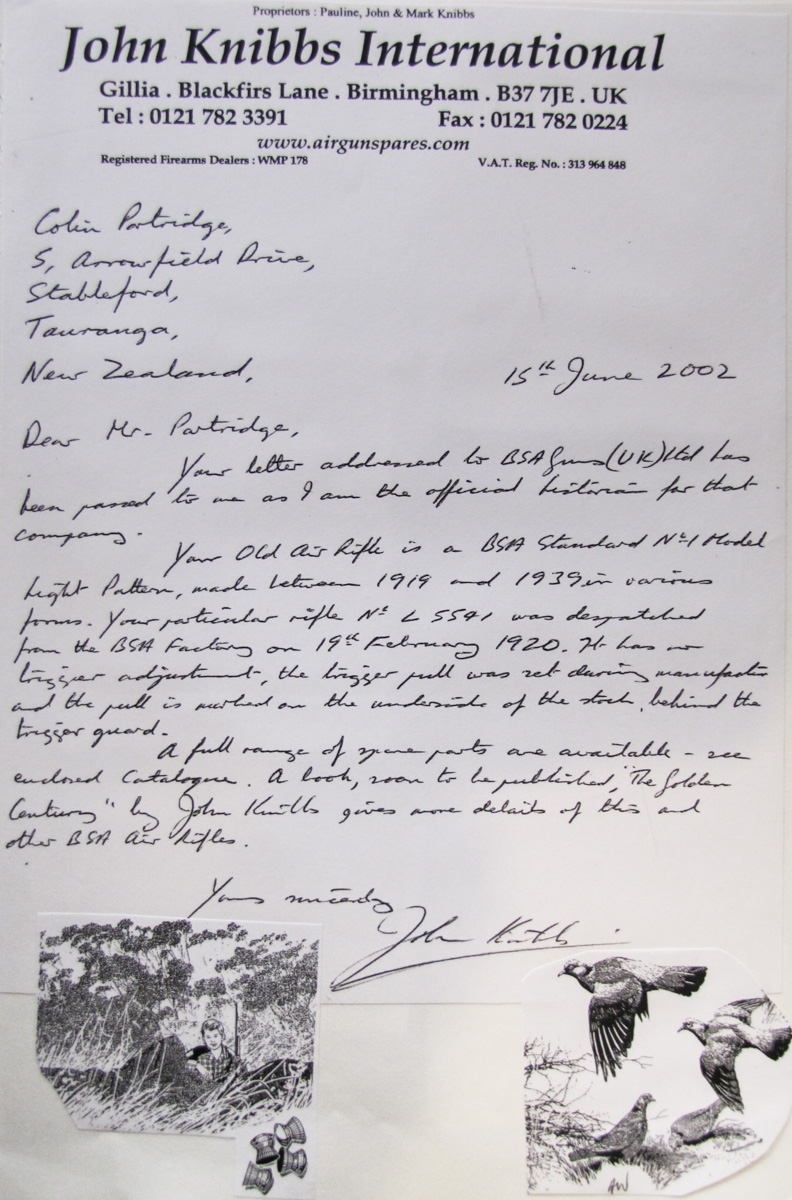 Proprietors : Pauline, John & Mark Knibbs
John Knibbs International
Gillia . Blackfirs Lane . Birmingham . B37 7JE . UK
Tel : 0121 782 3391 Fax : 0121 782 0224
www.airgunspares.com
Registered Firearms Dealers : WMP 178 V.A.T. Reg. No. : 313 964 848
Colin Partridge,
5, Arrowfield Drive,
Stableford,
Tauranga,
New Zealand,
15th June 2002
Dear Mr. Partridge,
Your letter addressed to BSA Guns (UK) Ltd has
been passed to me as I am the official historian for that
company.
Your Old Air Rifle is a BSA Standard No1 Model
Light Pattern, made between 1919 and 1939 in various
forms. Your particular rifle No L 5541 was despatched
from the BSA Factory on 19th February 1920. It has no
trigger adjustment, the trigger pull was set during manufacture
and the pull is marked on the underside of the stock, behind the
trigger guard.
A full range of spare parts are available - see
enclosed Catalogue. A book, soon to be published, "The Golden
Century" by John Knibbs gives more details of this and
other BSA Air Rifles.
Yours sincerely
John Knibbs
AW